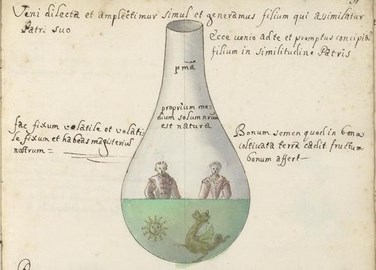 Veni dilecta et amplectimur simul et generamus filium qui assimilatur
Patri suo
Ecce venio ad te et promptus concipia
filium in similitudine Patris
pma
proprium me-
dium solum nrum
est natura
fac fixum volatile et volati-
le fixum et habeas magisterius
nostrum
Bonum semen quod in bona
cultivata terra cadit fructum
bonum affert